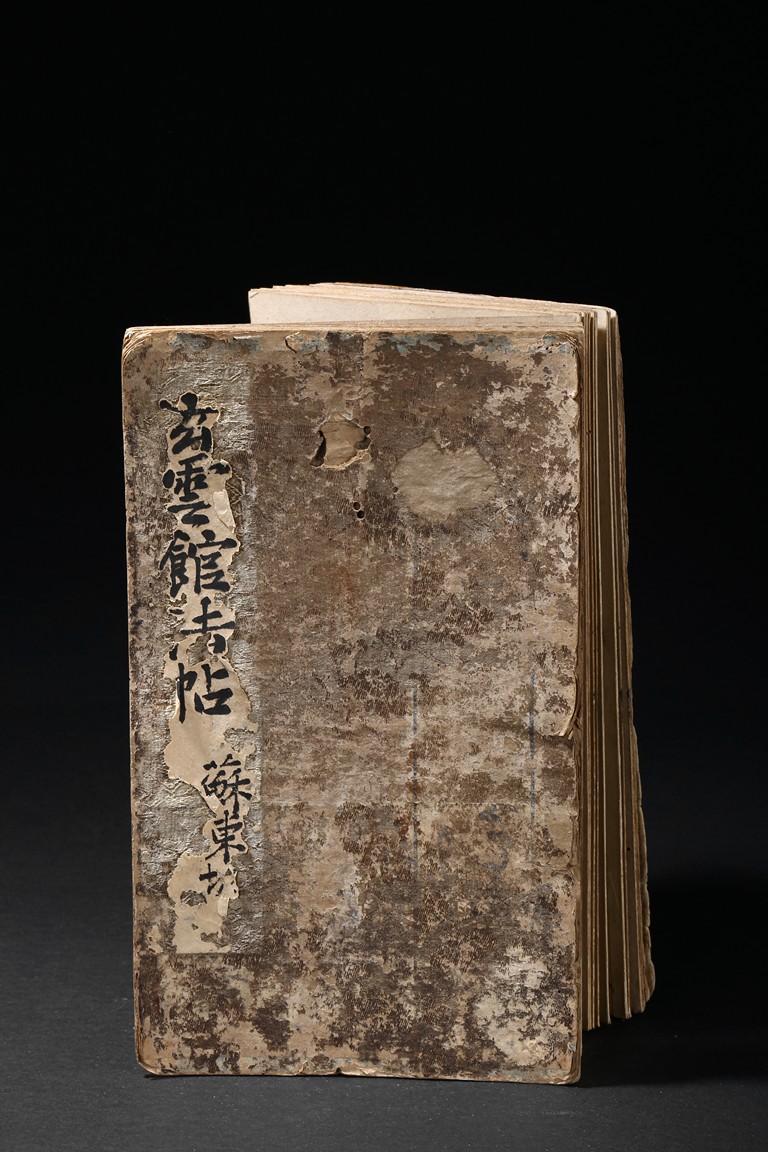 玄雲館法帖
蘇東坡